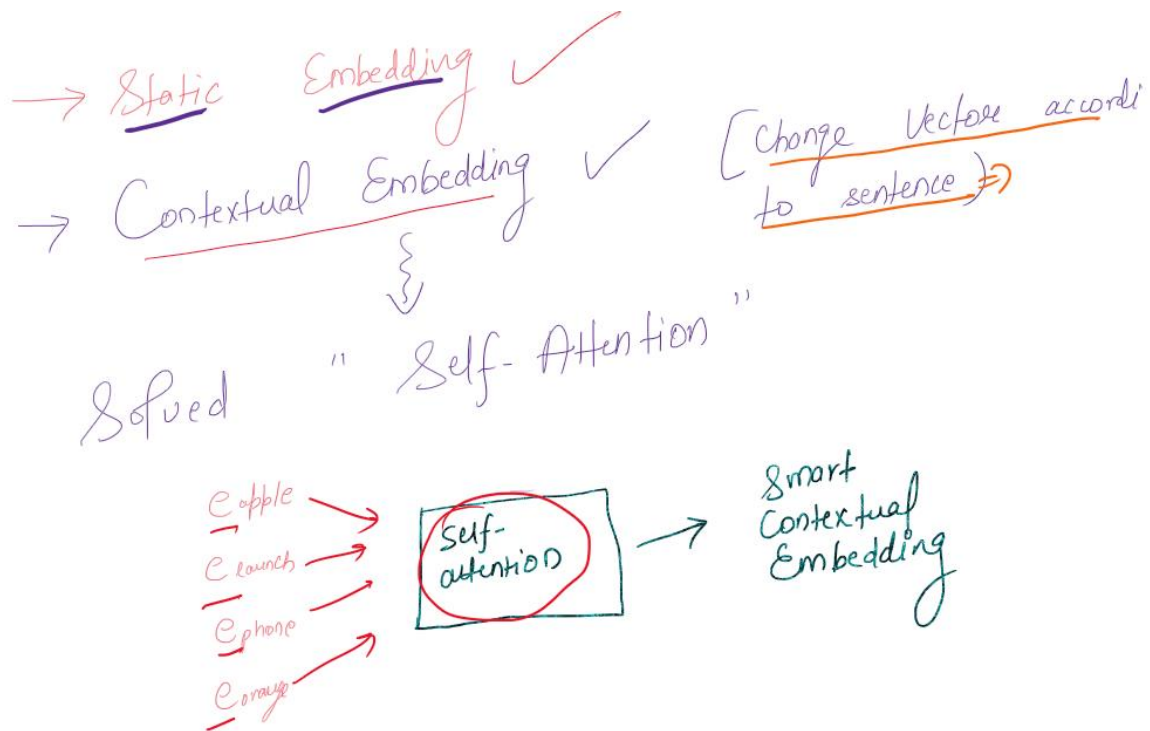 → Static Embedding ✓
→ Contextual Embedding ✓
[Change Vectore accordi
to sentence) ⇒
Solved " Self-Attention "
e apple
e launch
e phone
e orange
Self-
attention
→ Smart
Contextual
Embedding